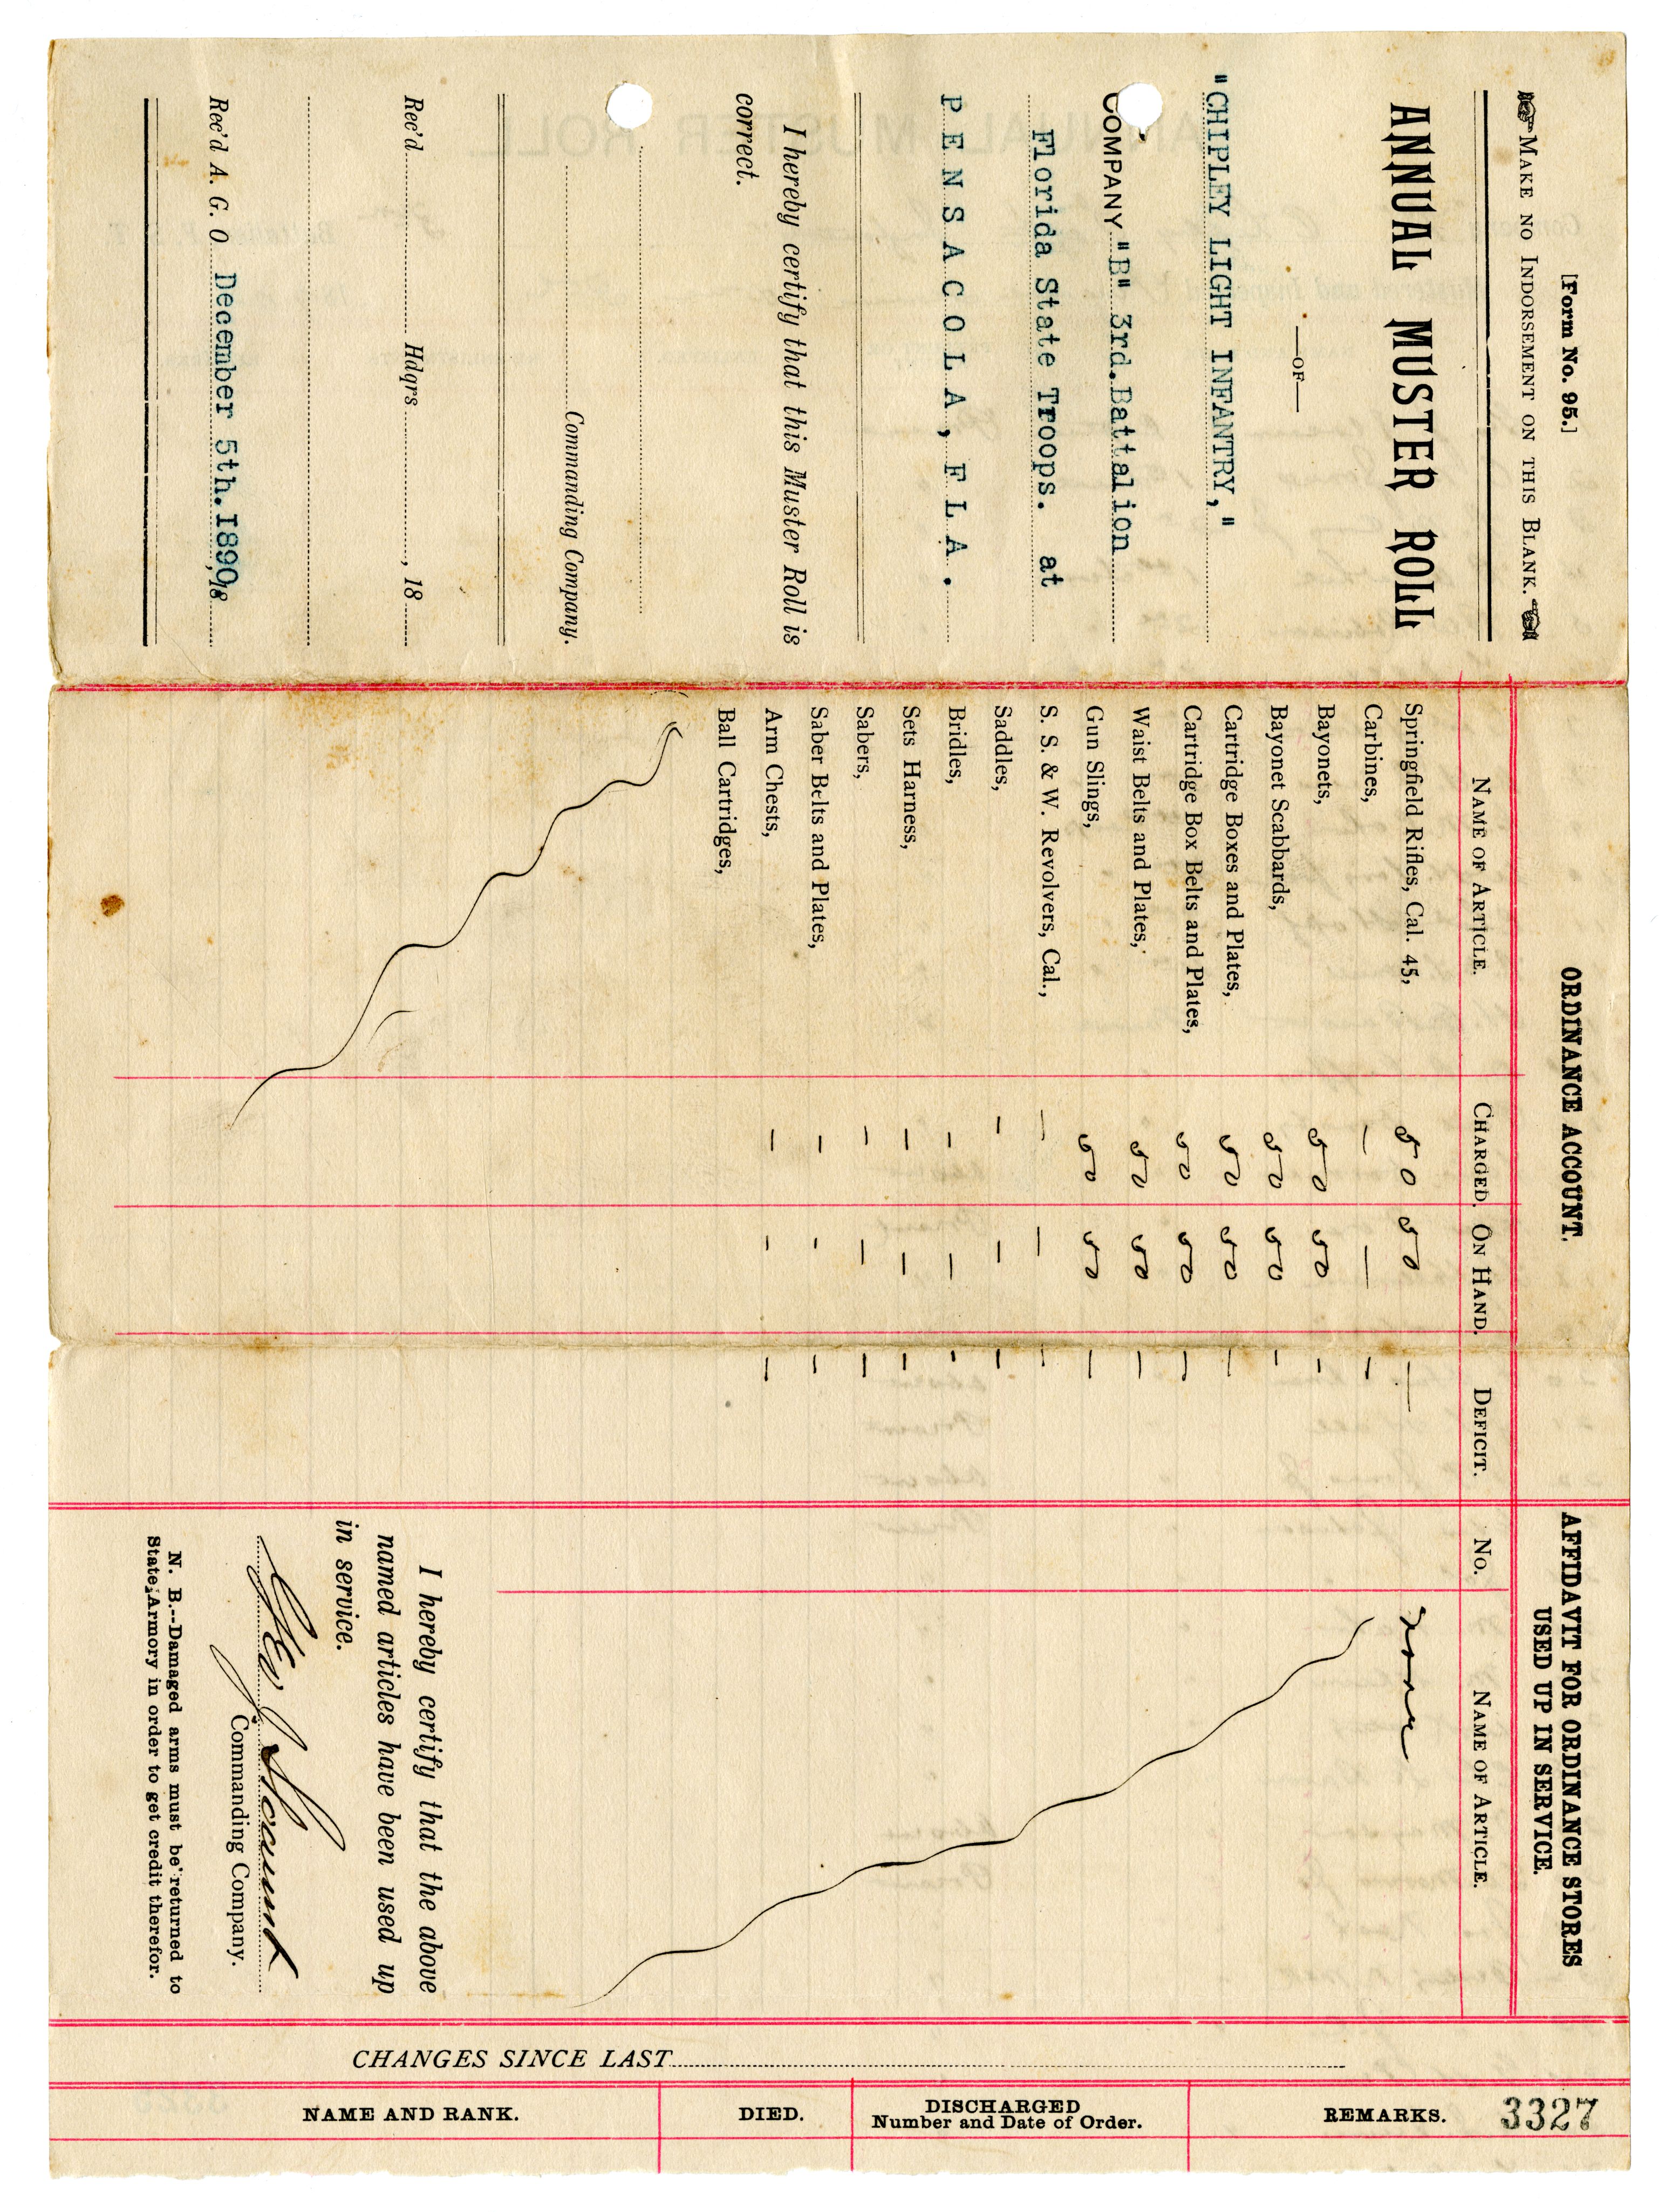 [Form No. 95.]
MAKE NO INDORSEMENT ON THIS BLANK.
ANNUAL MUSTER ROLL
—OF—
"CHIPLEY LIGHT INFANTRY,"
COMPANY "B" 3rd.Battalion
Florida State Troops. at
PENSACOLA, FLA.
I hereby certify that this Muster Roll is
correct.
Commanding Company.
Rec'd Hdqrs , 18
Rec'd A. G. O December 5th.1890, 18
ORDINANCE ACCOUNT.
NAME OF ARTICLE. CHARGED. ON HAND. DEFICIT.
Springfield Rifles, Cal. 45, 50 50 —
Carbines, — — —
Bayonets, 50 50 —
Bayonet Scabbards, 50 50 —
Cartridge Boxes and Plates, 50 50 —
Cartridge Box Belts and Plates, 50 50 —
Waist Belts and Plates, 50 50 —
Gun Slings, 50 50 —
S. S. & W. Revolvers, Cal., — — —
Saddles, — — —
Bridles, — — —
Sets Harness, — — —
Sabers, — — —
Saber Belts and Plates, — — —
Arm Chests, — — —
Ball Cartridges,
AFFIDAVIT FOR ORDINANCE STORES
USED UP IN SERVICE.
No. NAME OF ARTICLE.
none
I hereby certify that the above
named articles have been used up
in service.
Commanding Company.
N. B.--Damaged arms must be returned to
State Armory in order to get credit therefor.
CHANGES SINCE LAST
NAME AND RANK. DIED. DISCHARGED REMARKS. 3327
Number and Date of Order.